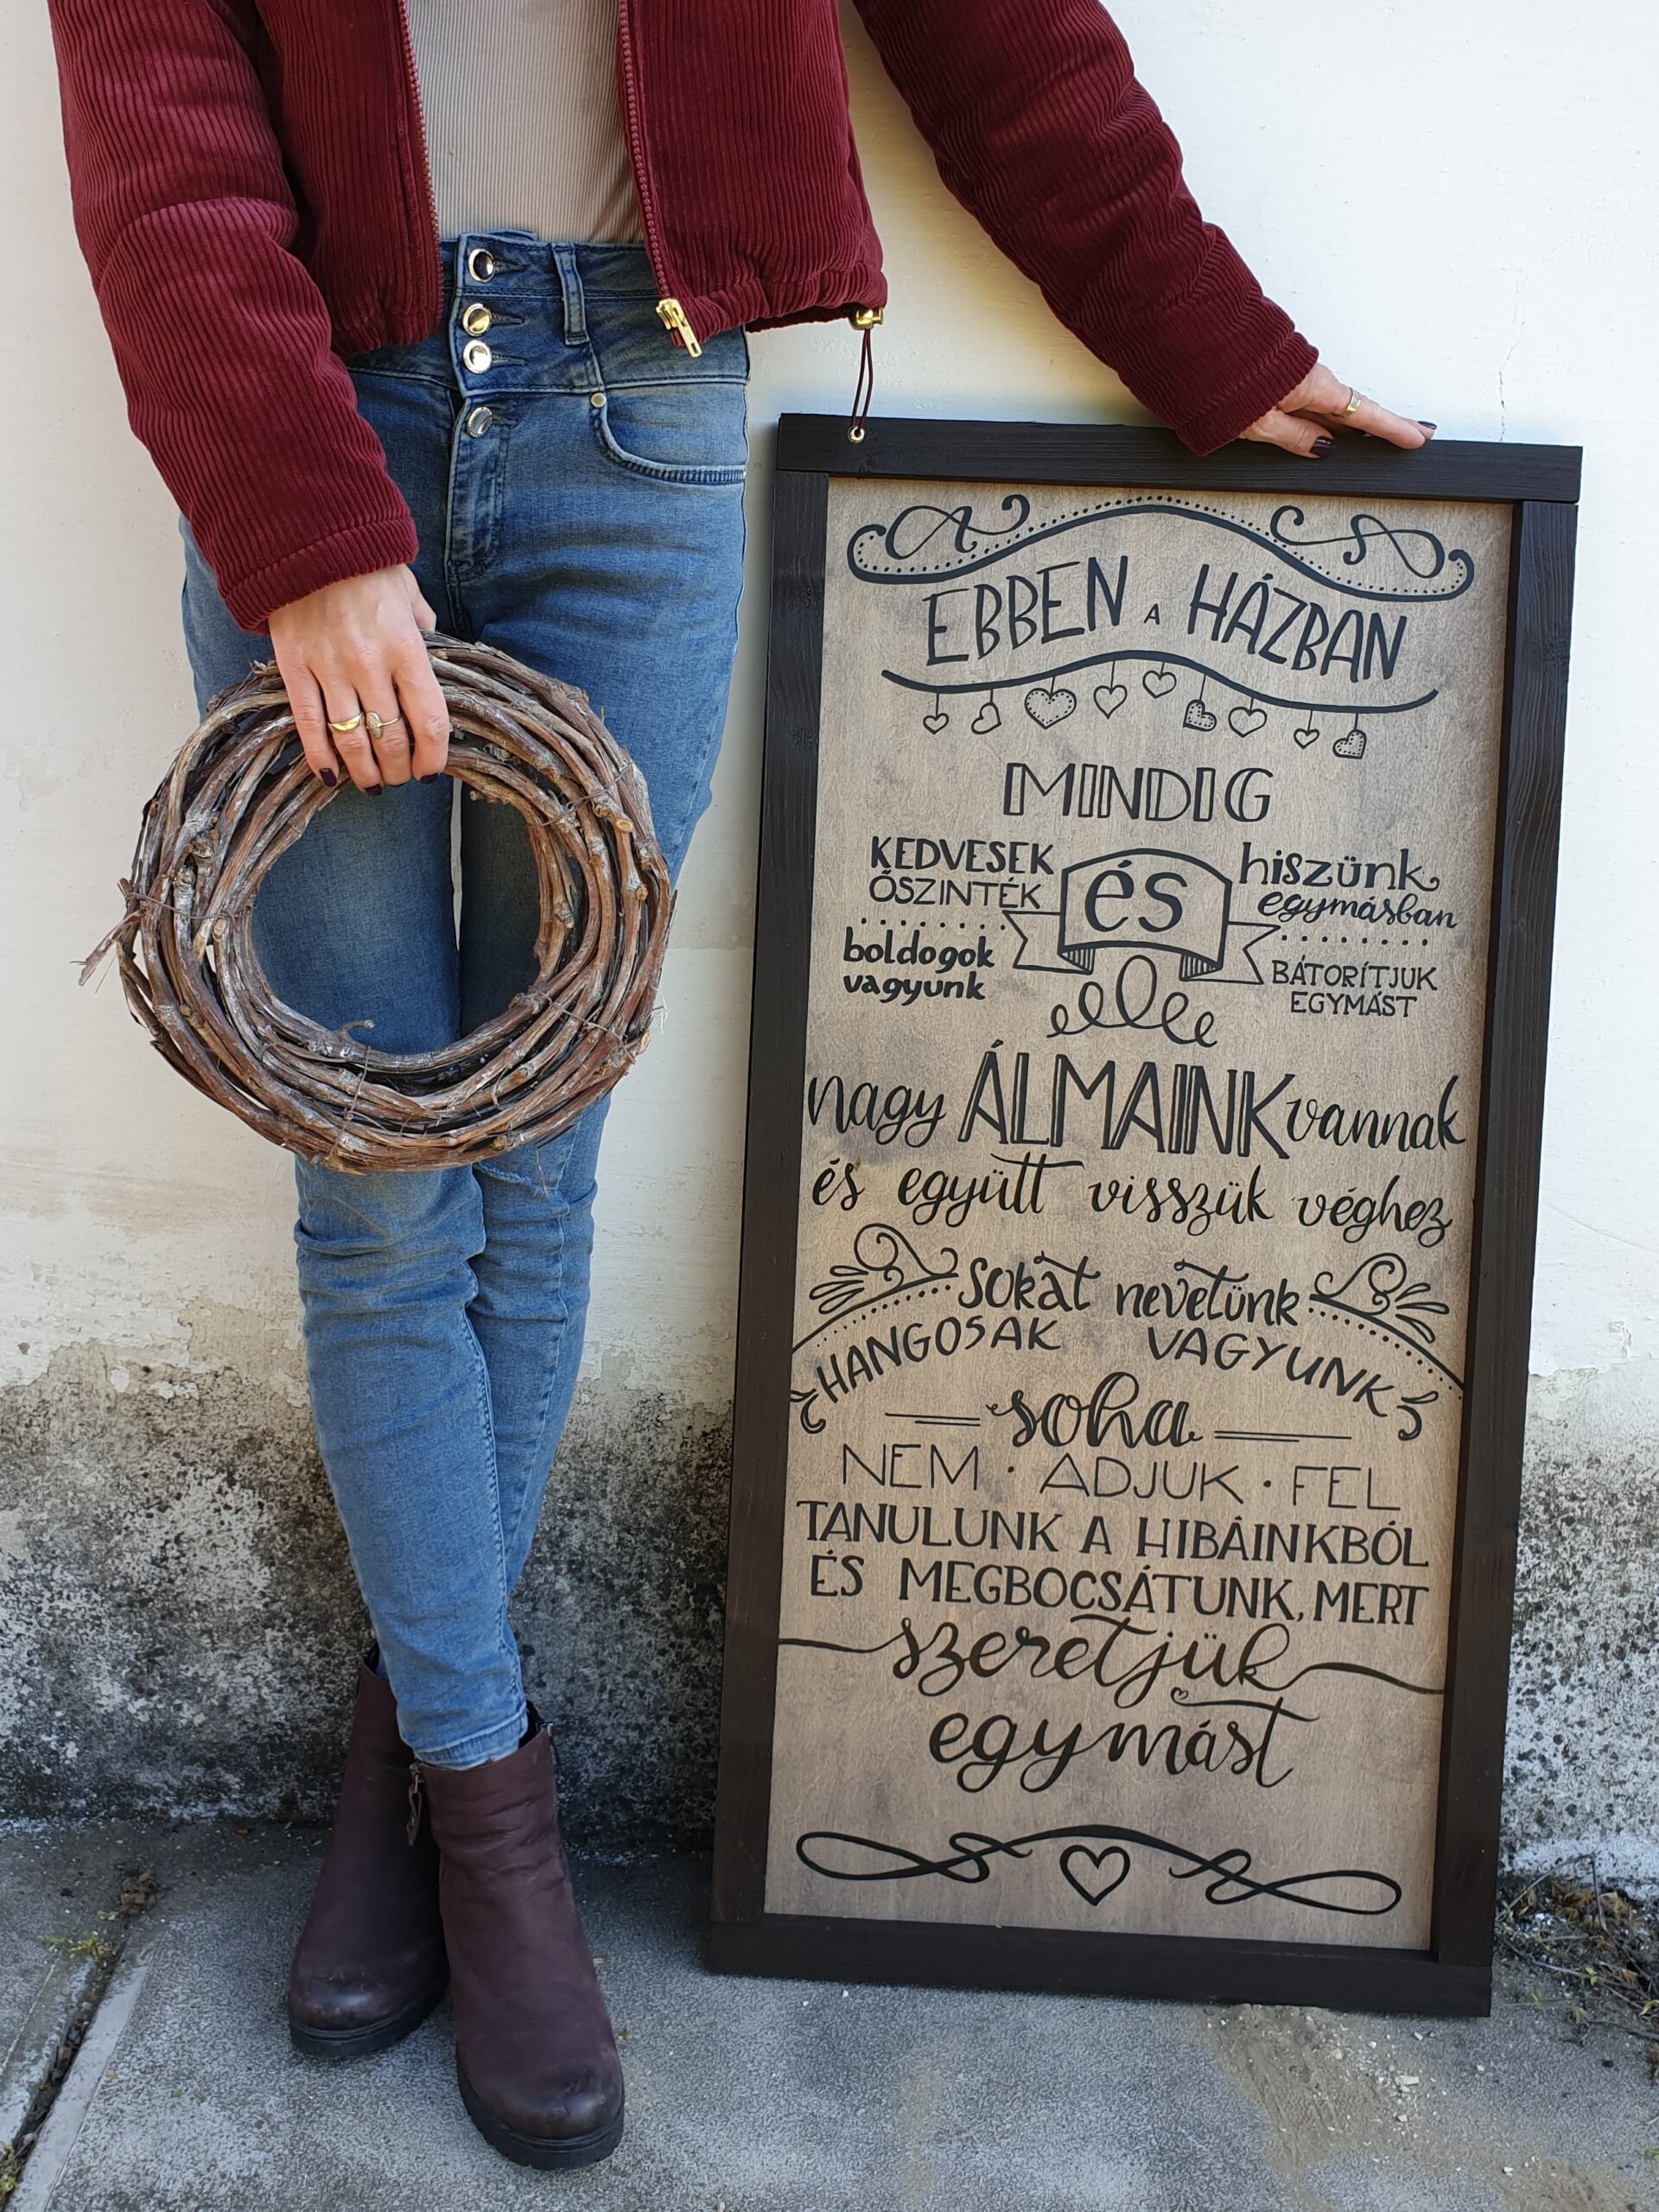 EBBEN A HÁZBAN
MINDIG
KEDVESEK
ŐSZINTÉK
boldogok
vagyunk
és
hiszünk
egymásban
BÁTORÍTJUK
EGYMÁST
nagy ÁLMAINK vannak
és együtt visszük véghez
sokat nevetünk
HANGOSAK VAGYUNK
soha
NEM · ADJUK · FEL
TANULUNK A HIBÁINKBÓL
ÉS MEGBOCSÁTUNK, MERT
szeretjük
egymást